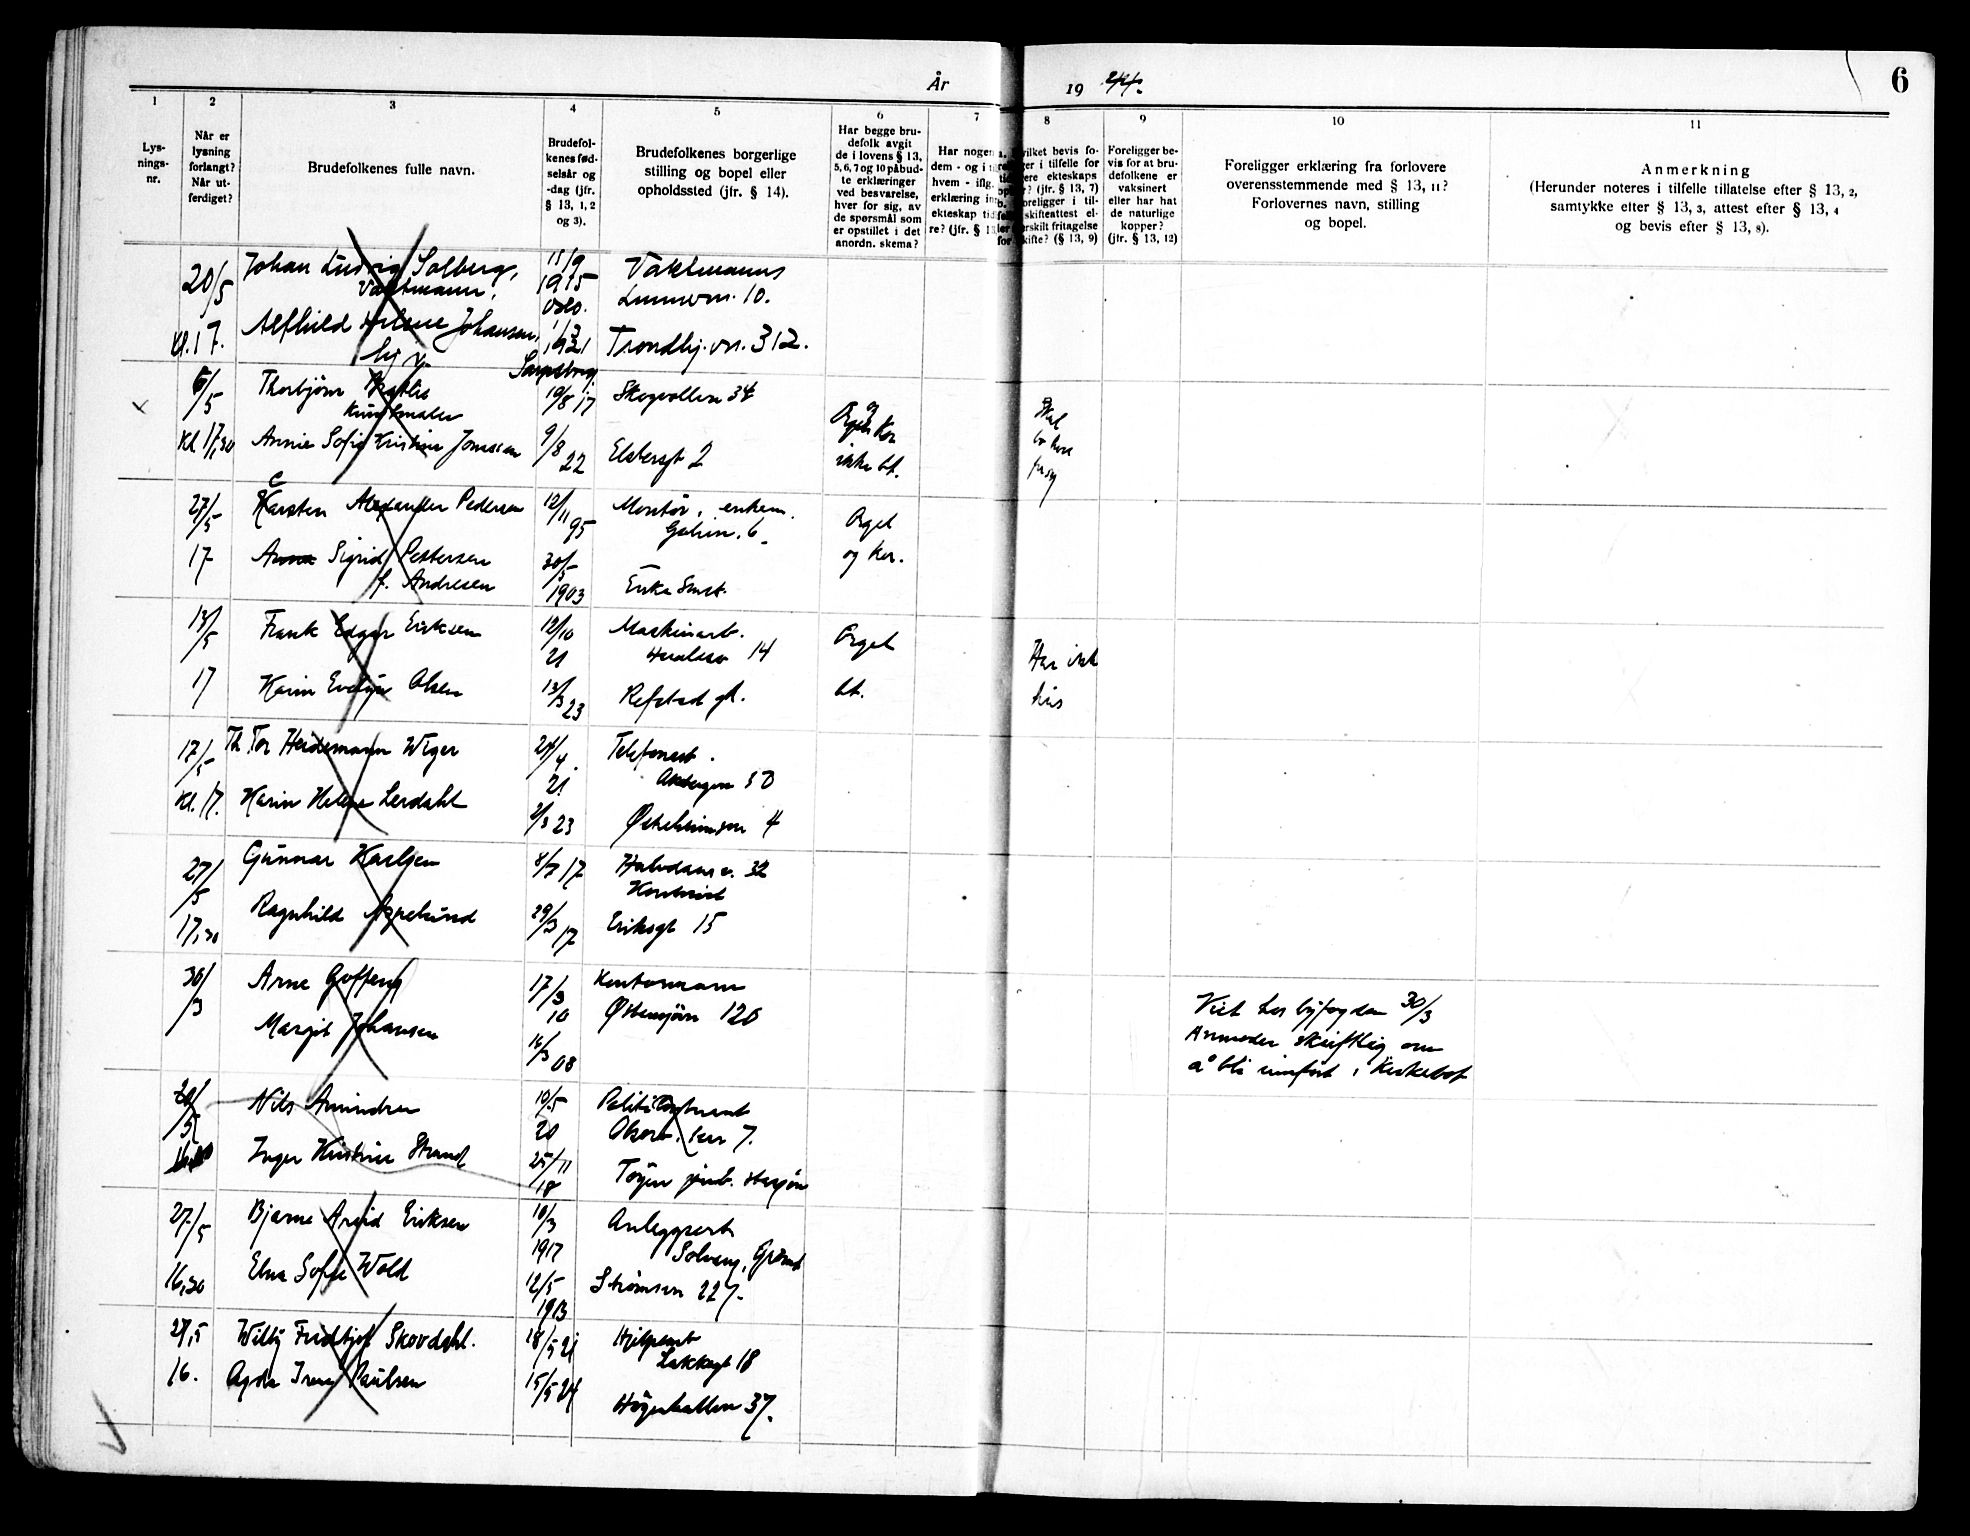 År 1944.
6
1
2
3
4
5
6
7
8
9
10
11
Lys-
nings-
nr.
Når er
lysning
forlangt?
Når ut-
ferdiget?
Brudefolkenes fulle navn.
Brudefol-
kenes fød-
selsår og
-dag (jfr.
§ 13, 1, 2
og 3).
Brudefolkenes borgerlige
stilling og bopel eller
opholdssted (jfr. § 14).
Har begge bru-
defolk avgit
de i lovens § 13,
5, 6, 7 og 10 påbud-
te erklæringer
ved besvarelse,
hver for sig, av
de spørsmål som
er opstillet i det
anordn. skema?
Har nogen
dem - og i
hvem - iflg.
erklæring inn
ekteskap
re? (jfr. § 13
hvilket bevis fo-
ger i tilfelle for
ekteskaps
? (jfr. § 13, 7)
foreligger i til-
skifteattest el-
særskilt fritagelse
skifte? (§ 13, 9)
Foreligger be-
vis for at bru-
defolkene er
vaksinert
eller har hat
de naturlige
kopper?
(jfr. § 13, 12)
Foreligger erklæring fra forlovere
overensstemmende med § 13, 11?
Forlovernes navn, stilling
og bopel.
Anmerkning
(Herunder noteres i tilfelle tillatelse efter § 13, 2,
samtykke efter § 13, 3, attest efter § 13, 4
og bevis efter § 13, 8).
20/5 Johan Ludvig Solberg, 15/9 Vaktmanns
Vaktmann. 1915 Oslo.
10.
Kl. 17. Alfhild Helene Johansen, 1/3 1921 Trondhj.vn. 312.
Sarpsborg
6/5 Thorbjørn 19/8 17 Skogvollvn 34
Kunstmaler
Kl 17,30 Annie Sofie Kristine Jonassen 9/8 22 Ebbesgt 2
ikke bt.
27/5 Karsten Alexander Pedersen 12/11 95 Montør, enkem. Orgel
6.
17 Anna Sigrid Pettersen 30/5 og kor.
f. Andresen 1903
13/5 Frank Edgar Eriksen 12/10 21 Maskinarb. Orgel
14
17 Karin Evelyn Olsen 13/3 23 Refstad gt. bt.
Har ikke
17/5 Th. Tor Heidemann Wiger 24/4. 21
Kl. 17. Karin Helene Lerdahl 2/3 23 4
27/5 Gunnar Karlsen 8/7 17 Halvdans v. 32
Kontorist
17,30 Ragnhild Appelund 29/3 17 Eriksgt 15
30/3 Arne Goffeng 17/3 10 Kontormann
Østensjøvn 120
Margit Johansen 16/3 08
Viet hos byfogden 30/3
Anmoder skriftlig om
å bli innført i Kirkebok
20/5 Nils Amundsen 10/5 20
7.
Inger Kristine Strand 25/11 18 Tøyen jernb. stasjon
27/5 Bjarne Arvid Eriksen 10/3 1917 Anleggsarb
Solvang,
16,30 Elna Sofie Wold 12/5 1913 Strømsvn 227.
27,5 Willy Fridtjof Skovdahl. 18/5 21 Hjelpearb
Lakkegt 18
16. Agda Irene Paulsen 15/5 24 Høyenhallvn 37.